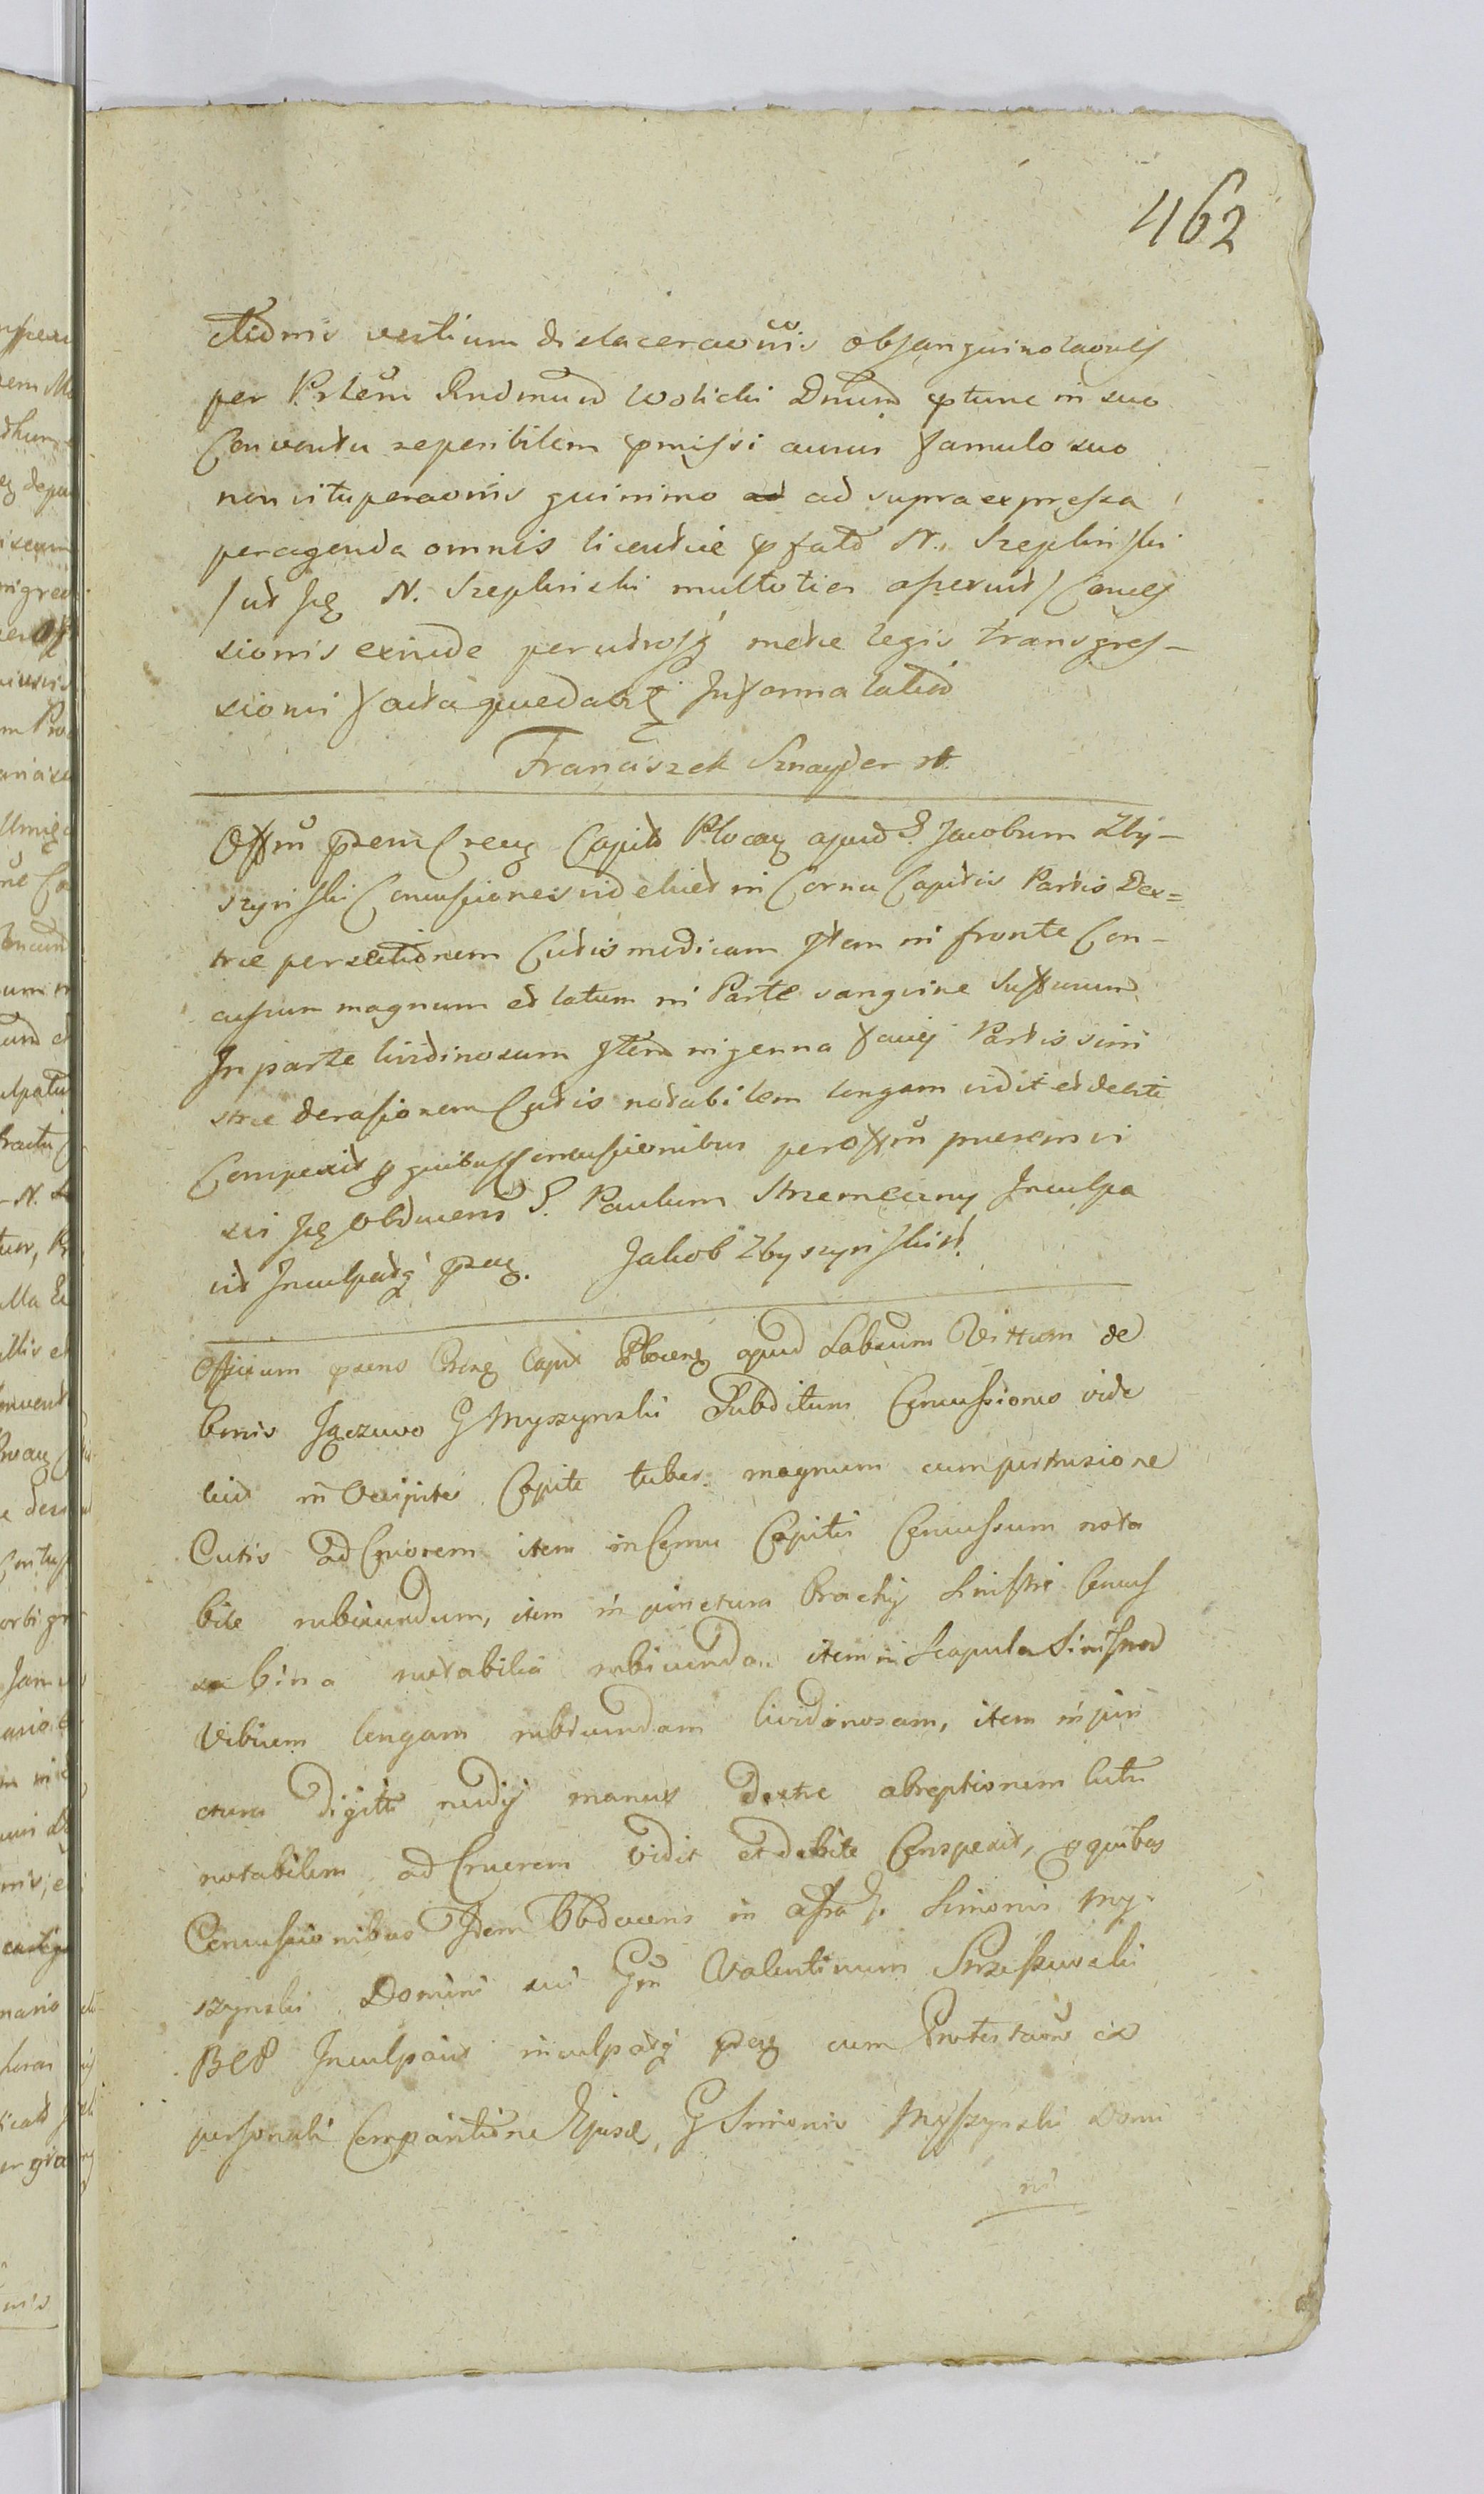 462
ctionis vestium dilaceraonis obsanguinolaonis
per Prlem Rndmum Wolicki Dnum ptunc in suo
Conventu reperibilem pmissi ausus famulo suo
non vituperaonis quinimo ad supra expressa
peragenda omnis licentiae pfato N. Szeplinski
/ut se N. Szeplinski multoties asseruit/ Conces
sionis exinde perutrosq metae legis transgres-
sioni facta quaedabq Informa latius
Franciszek Sznayder st.
Offm pzens Crens Capit Plocen apud F. Jacobum Zby-
szynski Concussiones videlicet in Cornu Capitis Partis Dex=
trae persectionem Cutis modicam Item in fronte Con-
cussum magnum et latum in Parte sanguine suffusum
In parte lividinosum Item in genna faciei Partis sini
strae derasionem Cutis notabilem longam vidit et debite
Conspexit p quibus Concussionibus per offm praesens vi
sis se Obducens F. Paulum Strzemeczny Inculpa
vit Inculpatq pzens. Jakob Zbyszynski st.
Officium pzens Crens Capit Plocens apud Labsum Vittum de
bonis Jączewo G Myszynski Subditum Concussiones vide
licet in Occipite Capite tuber magnum cum pertusione
Cutis ad Cruorem item in Cornu Capitis Concussum nota
bile rubicundum, item in junctura Brachij Sinistri Concus
sa bina notabilia rubicunda item in Scapula Sinistra
Vibicem longam rubicundam lividinosam, item in jun
ctura digiti medij manus dextrae abreptionem Cutis
notabilem ad Cruorem vidit et debite Conspexit, p quibus
Concussionibus Idem Obducens in assa G. Simonis My-
szynski Domini sui Gnm Valentinum Strzeszewski
BCP Inculpavit inculpatq pzens cum Protestaone ex
personali Comparitione Ejusd, G Simonis Myszynski Domi
ni